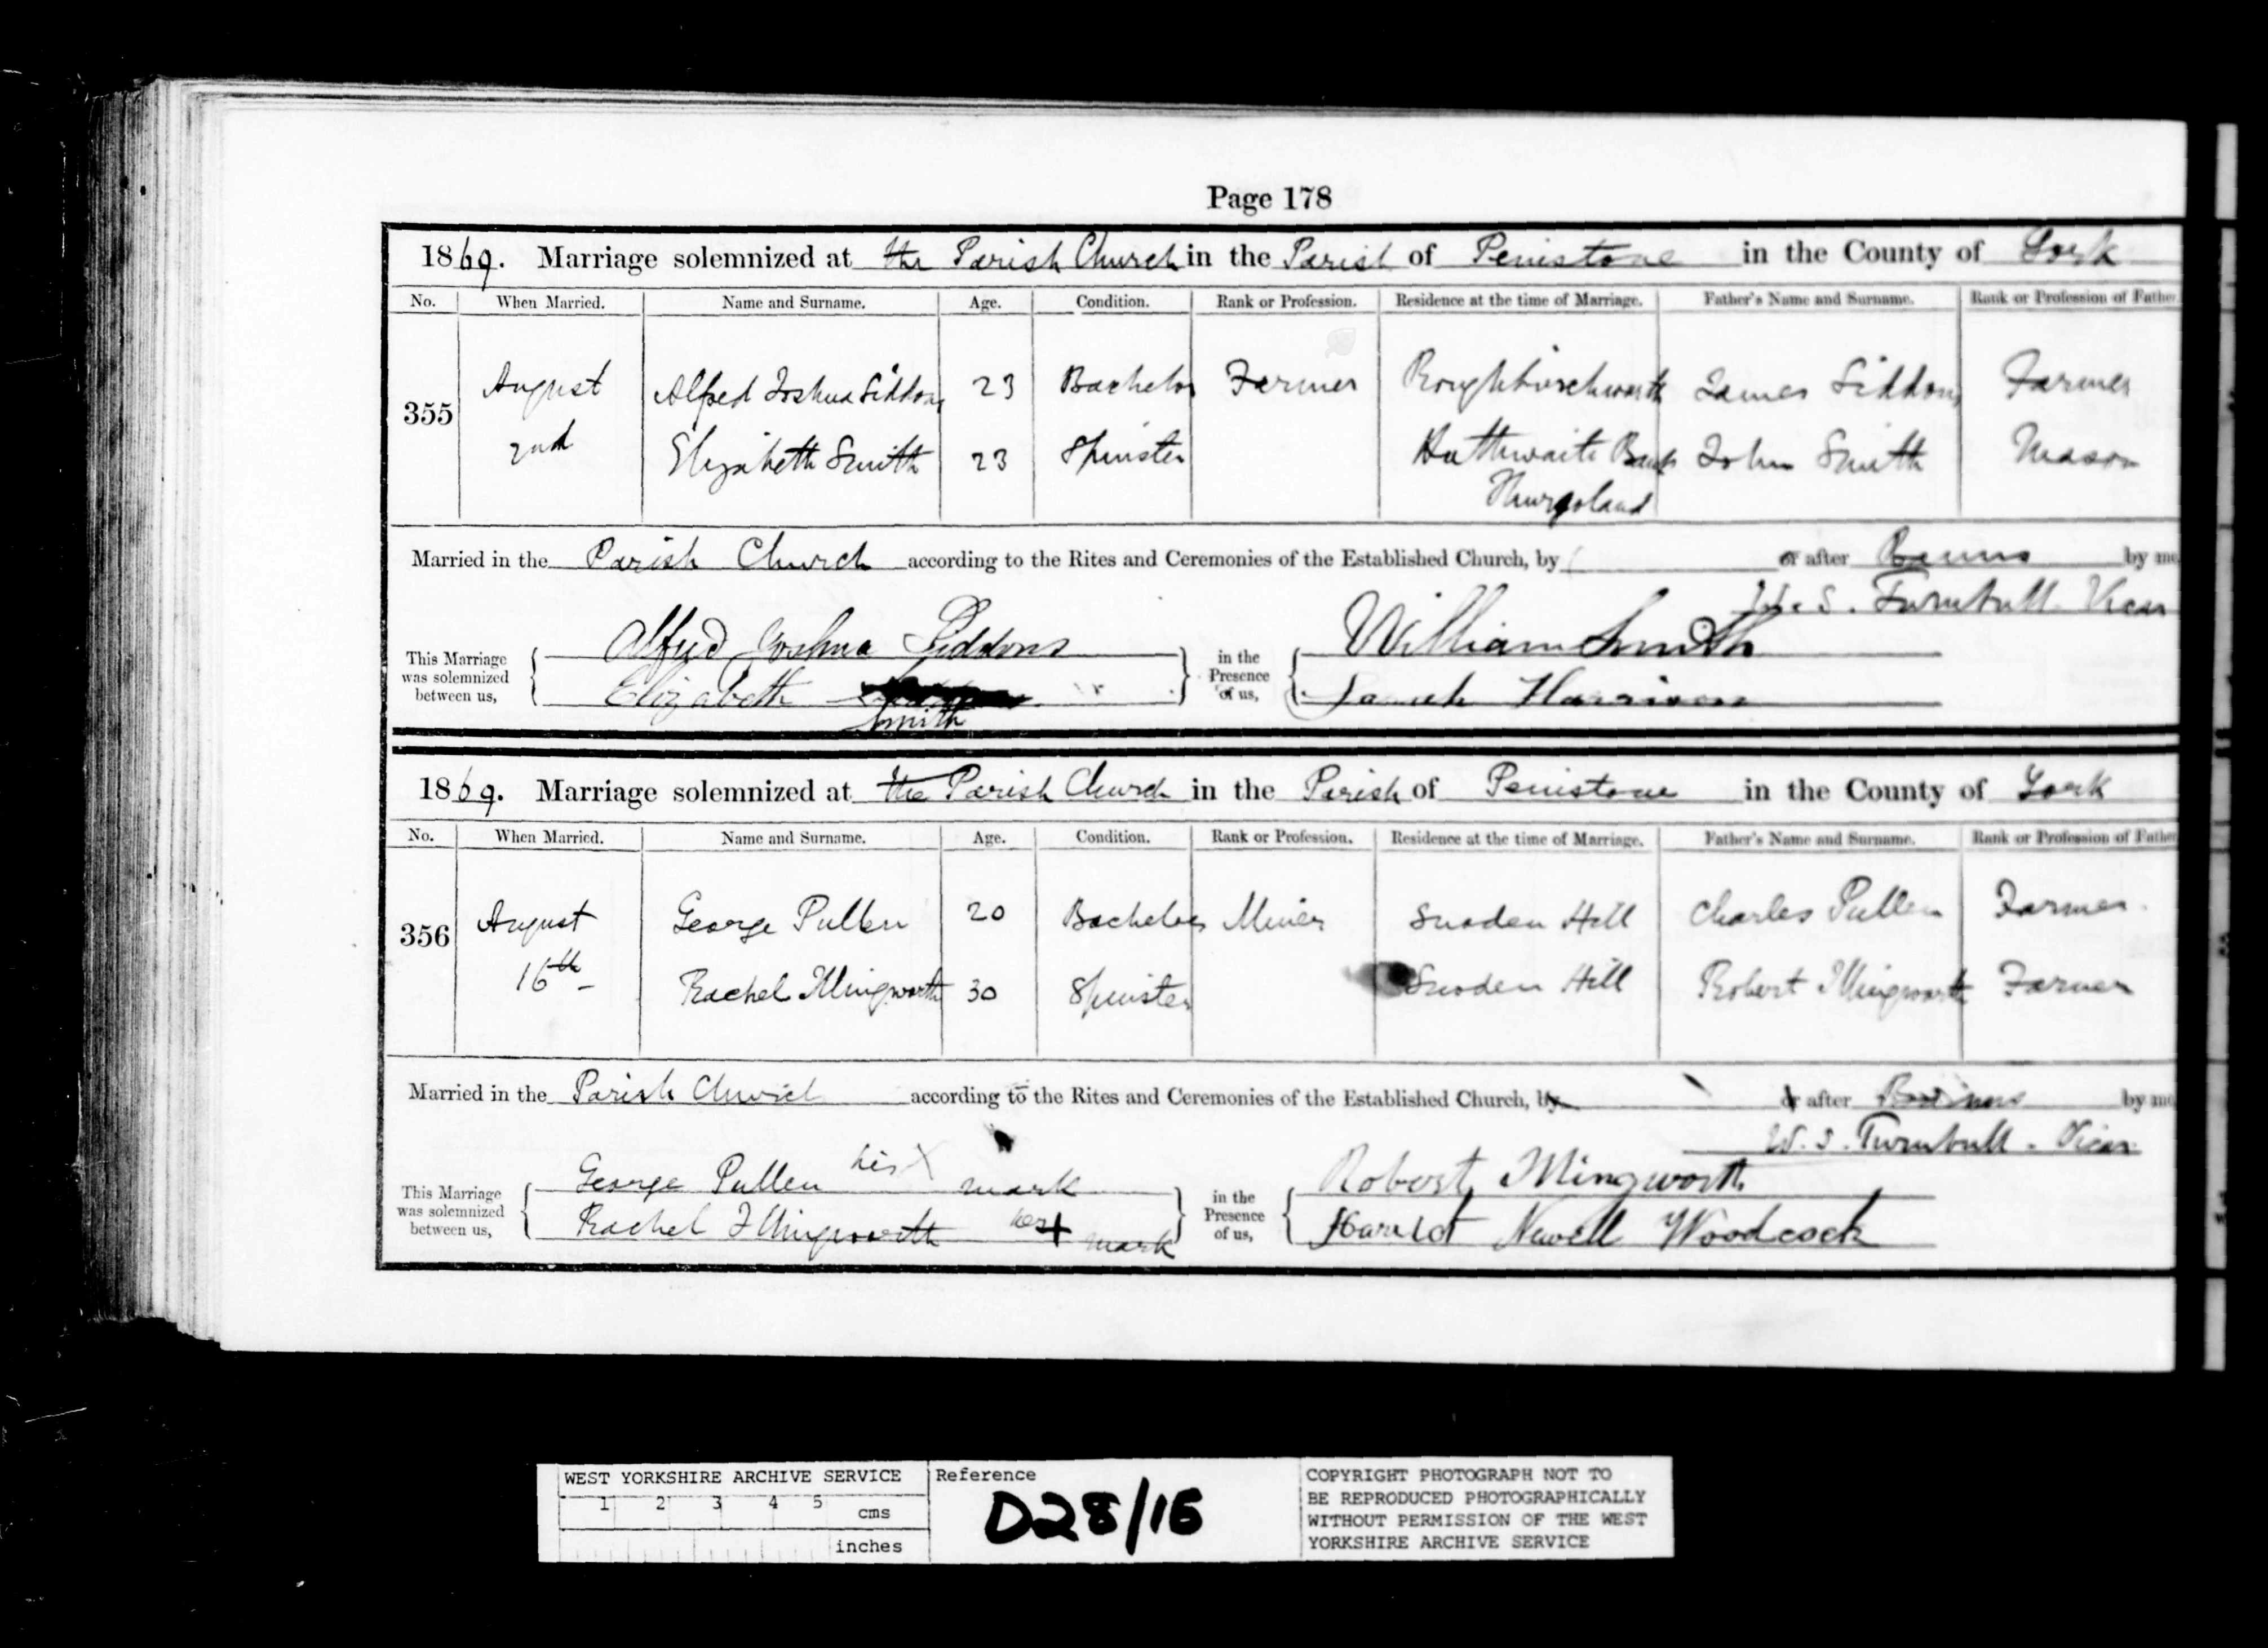 Page 178
1869. Marriage solemnized at the Parish Church in the Parish of Penistone in the County of York
No. When Married. Name and Surname. Age. Condition. Rank or Profession. Residence at the time of Marriage. Father's Name and Surname. Rank or Profession of Father
355 August Alfred Joshua Siddons 23 Bachelor Farmer Roughbirchworth James Siddons Farmer
2nd Elizabeth Smith 23 Spinster Huthwaite Bank John Smith Mason
Thurgoland
Married in the Parish Church according to the Rites and Ceremonies of the Established Church, by or after Banns by me
W. S. Turnbull Vicar
This Marriage was solemnized between us, Alfred Joshua Siddons in the Presence of us, William Smith
Elizabeth Smith Sarah Harrison
1869. Marriage solemnized at the Parish Church in the Parish of Penistone in the County of York
No. When Married. Name and Surname. Age. Condition. Rank or Profession. Residence at the time of Marriage. Father's Name and Surname. Rank or Profession of Father
356 August George Pullen 20 Bachelor Miner Snoden Hill Charles Pullen Farmer
16th Rachel Illingworth 30 Spinster Snoden Hill Robert Illingworth Farmer
Married in the Parish Church according to the Rites and Ceremonies of the Established Church, by or after Banns by me
W. S. Turnbull. Vicar
This Marriage was solemnized between us, George Pullen his X mark in the Presence of us, Robert Illingworth
Rachel Illingworth her + mark Harriot Newell Woodcock
WEST YORKSHIRE ARCHIVE SERVICE
1 2 3 4 5 cms
inches
Reference
D28/16
COPYRIGHT PHOTOGRAPH NOT TO
BE REPRODUCED PHOTOGRAPHICALLY
WITHOUT PERMISSION OF THE WEST
YORKSHIRE ARCHIVE SERVICE